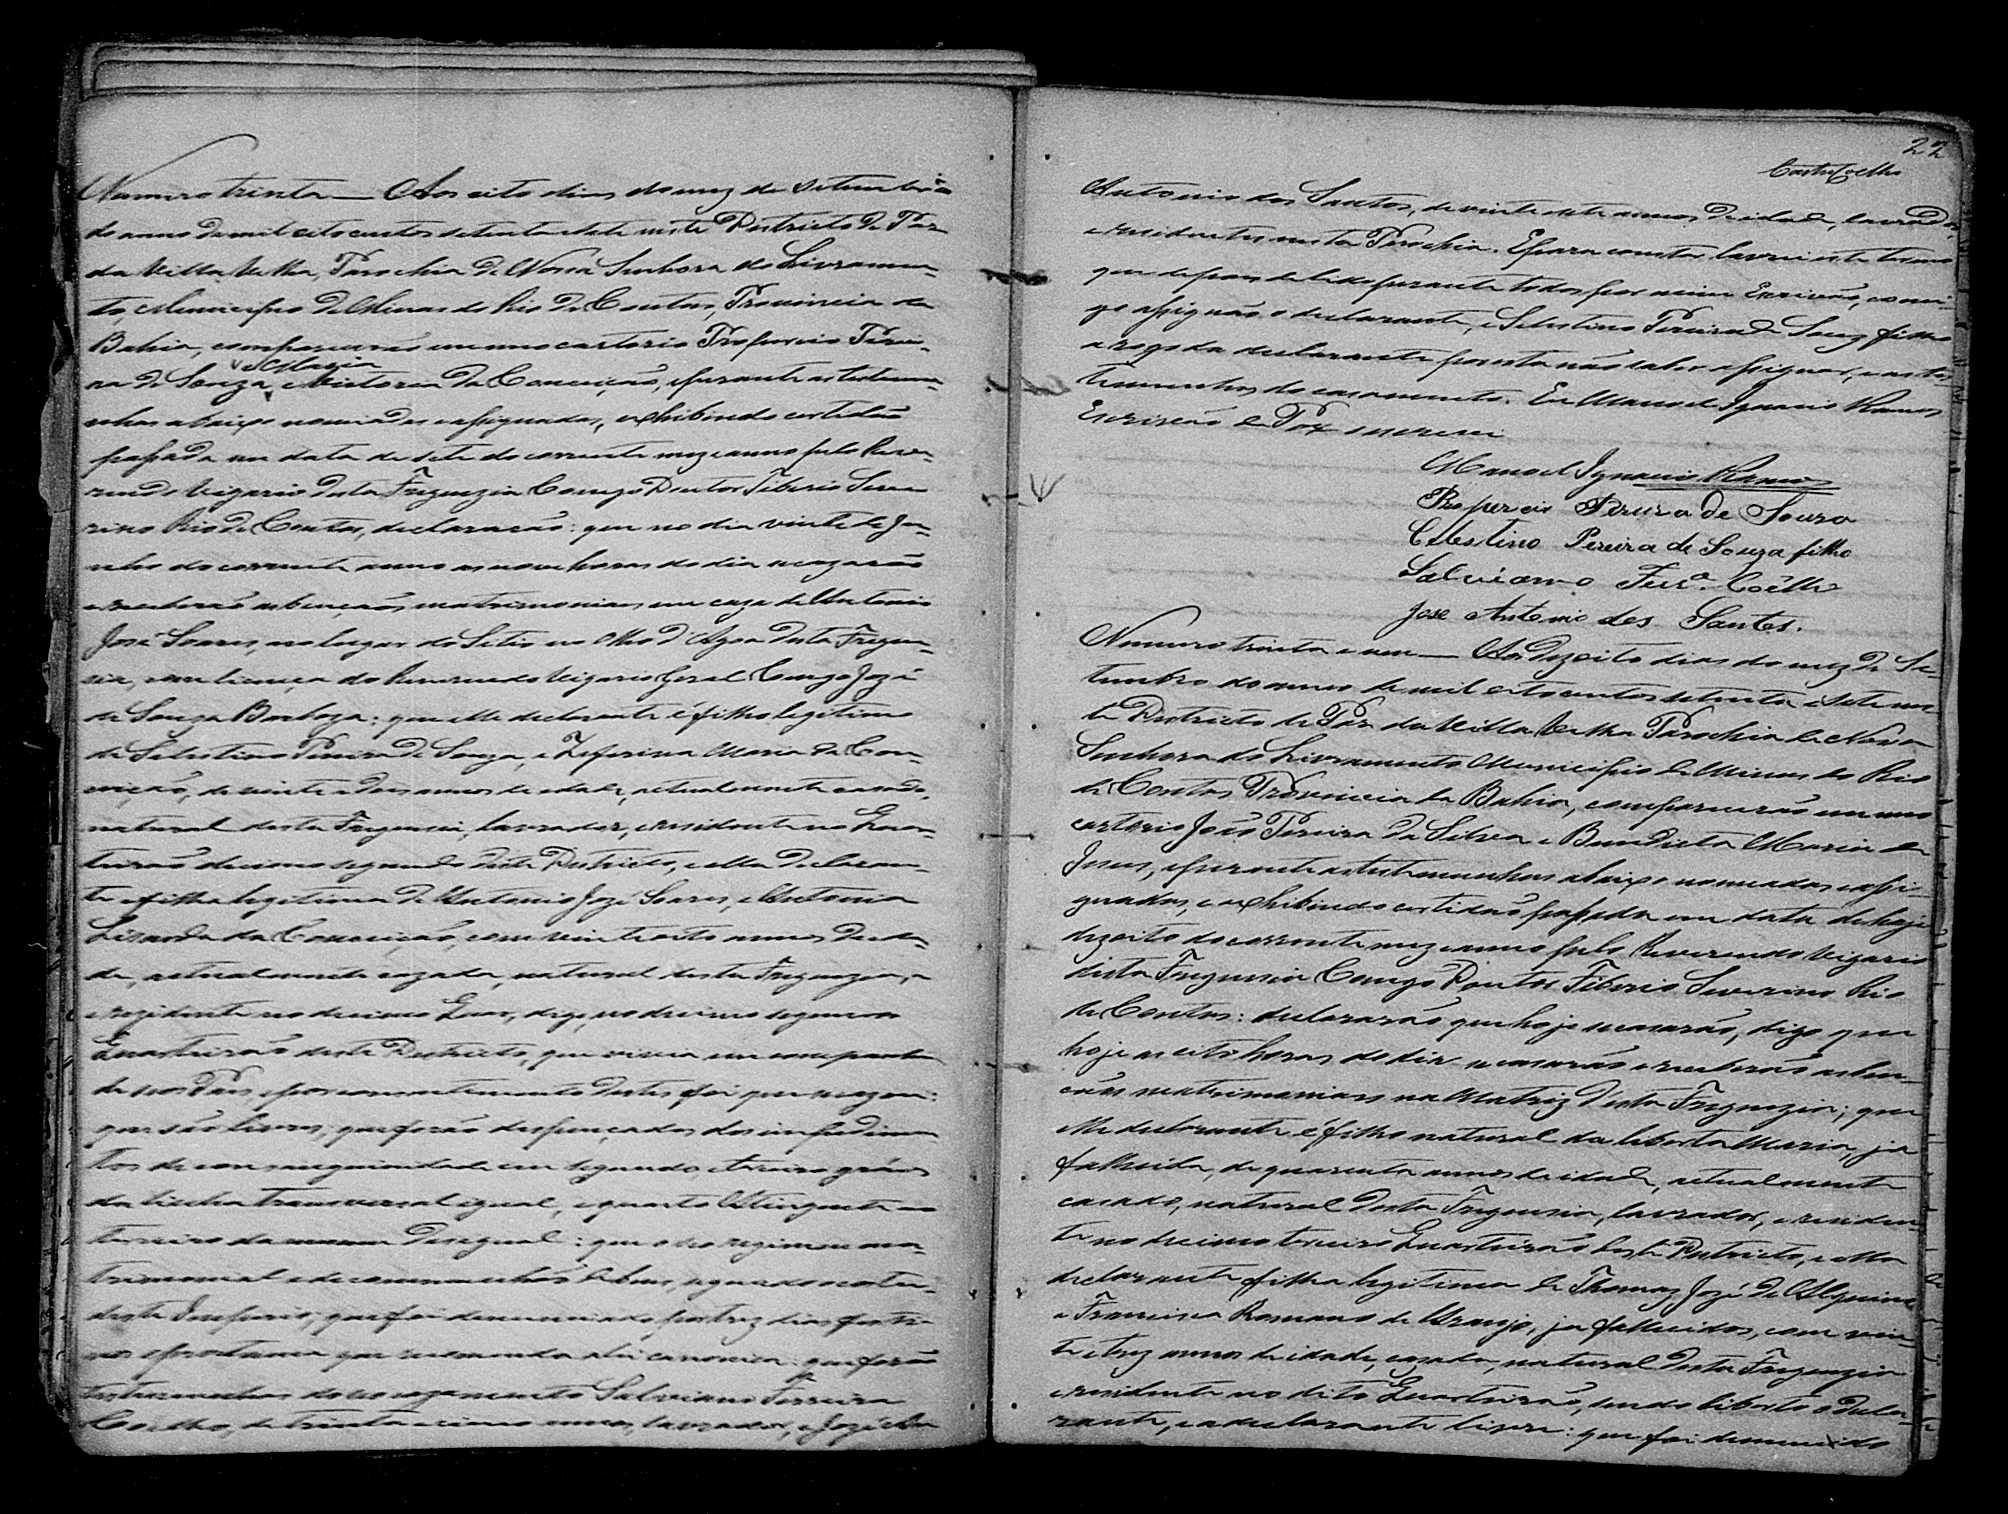 Numero trinta — Aos oito dias do mez de Setembro
do anno de mil oitocentos setenta e sete neste Districto de Paz
da Villa Velha, Parochia de Nossa Senhora do Livramen-
to, Municipio de Minas do Rio de Contas, Provincia da
Bahia, comparecerão em meo cartorio Propercio Perei-
ra de Souza, e Maria Victoria da Conceição, e perante as testemu-
nhas abaixo nomeadas e assignadas, exhibindo certidão
passada em data de sete do corrente mez e anno pelo Reve-
rendo Vigario desta Freguezia Conego Doutor Tiberio Seve-
rino Rio de Contas, declararão: que no dia vinte de Ju-
nho do corrente anno as nove horas do dia se cazarão
e receberão as bençãos matrimoniaes em caza de Antonio
José Soares, no lugar do Sitio no Olho d'Agoa desta Fregue-
zia, com licença do Reverendo Vigario Geral Conego José
de Souza Barboza: que elle declarante é filho legitimo
de Selestino Pereira de Souza, e Zeferina Maria da Con-
ceição, de vinte e dois annos de edade, actualmente casado,
natural desta Freguezia, lavrador, e residente no Quar-
teirão decimo segundo deste Districto, e ella declaran-
te é filha legitima de Antonio José Soares, e Antonia
da Conceição, com vinte e oito annos de eda-
de, actualmente cazada, natural desta Freguezia, e
rezidente no decimo Quar, digo, no decimo segundo
Quarteirão deste Districto, que vivia em companhia
de seos Pais, e por consentimento destes foi que se cazou:
que são livres; que forão despençados dos impedimen
tos de consanguinidade em segundo, e terceiro gráos
da linha transversal igual, e quarto attingente ao
terceiro da mesma desigual: que o seo regimen ma-
trimonial é de communhão de bens, segundo o costume
deste Imperio; que foi denunciado por trez dias festi-
vos e proclama que recomenda a lei canonica: que forão
testemunhas do seo cazamento Salviano Ferreira
Coelho, de trinta e cinco annos, lavrador, e José
22
Castro Coelho
Antonio dos Santos, de vinte e sete annos de idade, lavrador,
e residentes nesta Parochia. E para constar lavrei este termo
que depois de lido perante todos por mim Escrivão, comi-
go assignão o declarante, e Selestino Pereira de Souza filho
a rogo da declarante por esta não saber assignar, e as tes-
temunhas do casamento. Eu Manoel Ignacio Ramos
Escrivão de Paz escrevi
Manoel Ignacio Ramos
Propercio Pereira de Souza
Celestino Pereira de Souza filho
Salviano Ferrª. Coêlho
Jose Antonio dos Santos.
Numero trinta e um — Aos dezoito dias do mez de Se-
tembro do anno de mil oitocentos setenta e sete nes-
te Districto de Paz da Villa Velha Parochia de Nossa
Senhora do Livramento Municipio de Minas do Rio
de Contas Provincia da Bahia, comparecerão em meo
cartorio João Pereira da Silva e Benedicta Maria de
Jesus, e perante as testemunhas abaixo nomeadas e assi-
gnadas, e exhibindo certidão passada em data de hoje
dezoito do corrente mez e anno pelo Reverendo Vigario
desta Freguezia Conego Doutor Tiberio Severino Rio
de Contas: declararão que hoje se casarão, digo que
hoje as oito horas do dia se casarão e receberão as ben-
çãos matrimoniaes na Matriz desta Freguezia; que
elle declarante é filho natural da liberta Maria, já
fallecida, de quarenta annos de idade, actualmente
casado, natural desta Freguezia, lavrador, e residen-
te no decimo terceiro Quarteirão deste Districto, e ella
declarante filha legitima de Thomaz José de
e Francisca Romana de Araujo, já fallecidos, com vin-
te e trez annos de idade, casada, natural desta Freguezia
e residente no dito Quarteirão, sendo liberto o decla-
rante, e a declarante livre: que foi denunciado